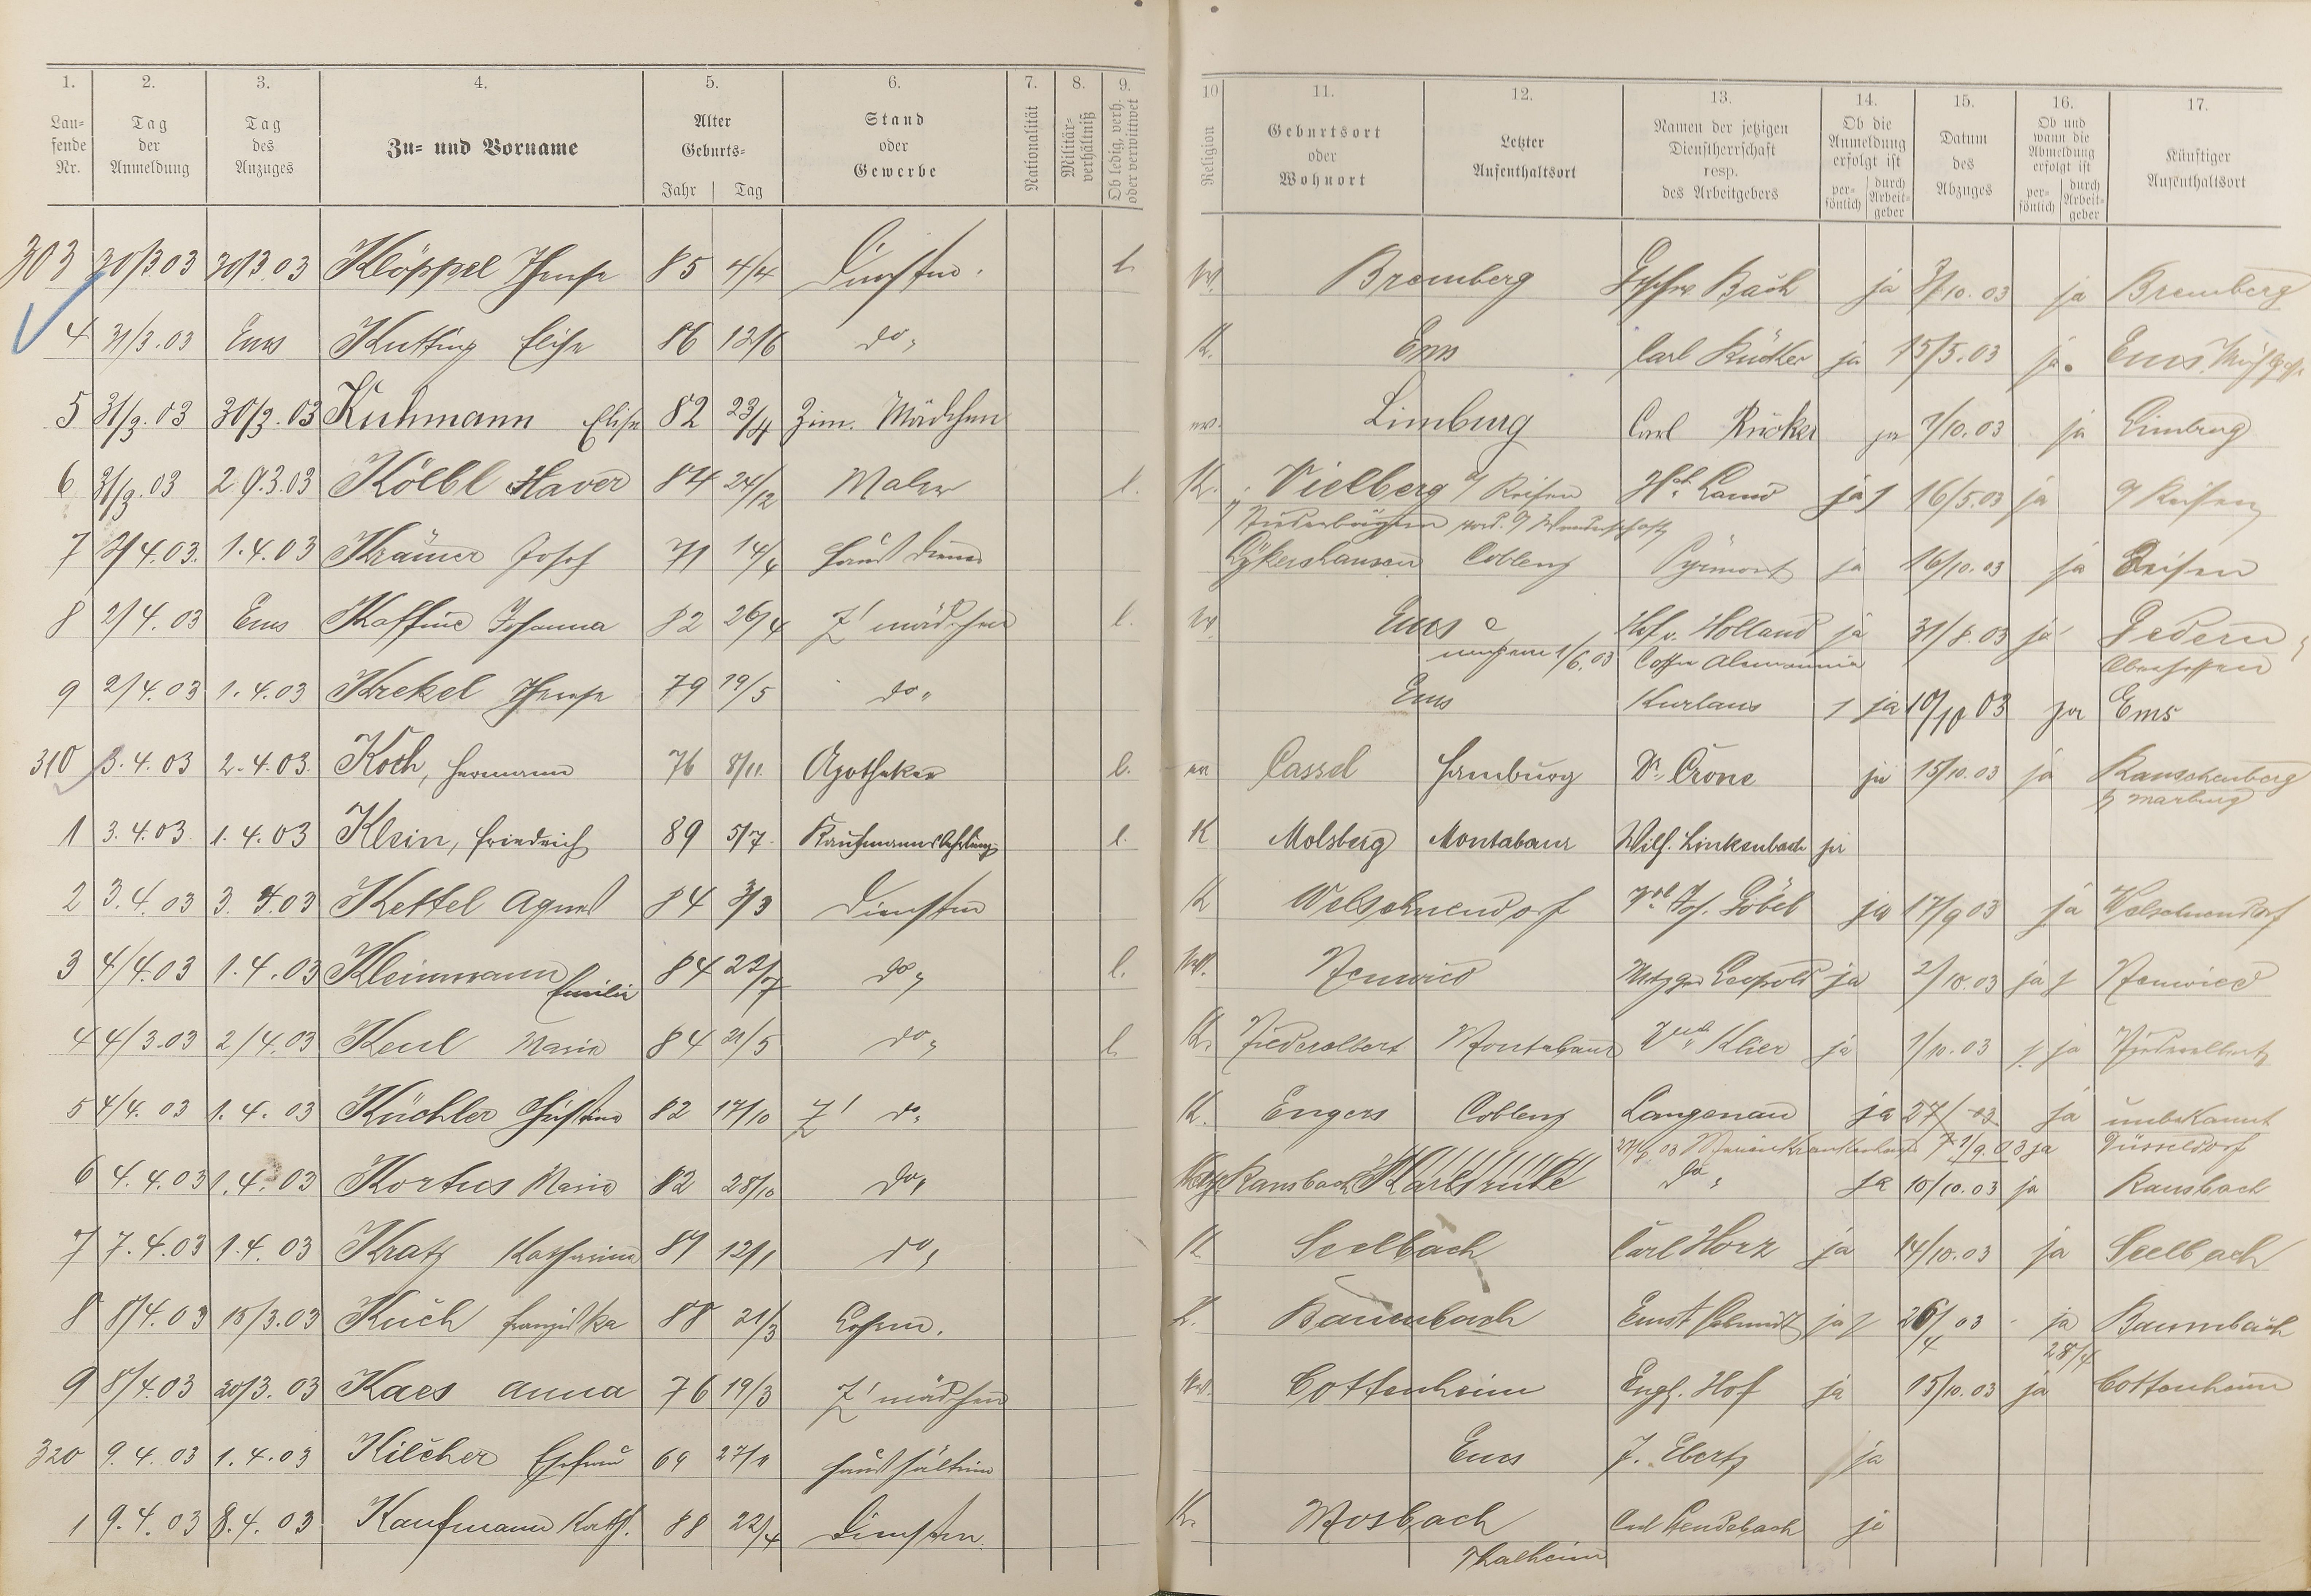 1. 2. 3. 4. 5. 6. 7. 8. 9. 10 11. 12. 13. 14. 15. 16. 17.
Lau-
fende
Nr.
Tag
der
Anmeldung
Tag
des
Anzuges
Zu- und Vorname
Alter
Geburts-
Jahr Tag
Stand
oder
Gewerbe
Nationalität
Militär-
verhältniß
Ob ledig, verh.
oder verwittwet
Religion
Geburtsort
oder
Wohnort
Letzter
Aufenthaltsort
Namen der jetzigen
Dienstherrschaft
resp.
des Arbeitgebers
Ob die
Anmeldung
erfolgt ist
per-
sönlich
durch
Arbeit-
geber
Datum
des
Abzuges
Ob und
wann die
Abmeldung
erfolgt ist
per-
sönlich
durch
Arbeit-
geber
Künftiger
Aufenthaltsort
303 30/3 03 30/3 03 Klöppel 85 4/4 l. Bremberg Bach ja 03 ja Bremberg
4 31/3.03 Ems Elise 86 12/6 do. K. Ems Carl Rücker ja 15/5.03 ja. Ems.
5 31/3.03 30/3.03 Kuhmann Elise 82 23/4 Zim. Mädchen Limburg Carl Rücker ja 1/10.03 ja Limburg
6 31/3.03 29.3.03 Kölbl Xaver 84 24/12 Maler l. K. Vielberg a/ Reisen ja 16/5.03 ja a/ Reisen
7 2/4.03. 1.4.03 Krämer Josef 71 14/4 Haus diener Coblenz Pyrmont ja 16/10.03 ja Reisen
8 2/4.03 Ems Johanna 82 26/4 Z! mädchen l. Ems Hof v. Holland ja 31/8.03 ja Gedern
1/6.03 Alemannia
9 2/4.03 1.4.03 Krekel 79 19/5 do. Ems Kurhaus ja 10/10 03 ja Ems
310 3.4.03 2.4.03. Koch, Hermann 76 8/11. Apotheker l. Cassel Hamburg Dr. Crone ja 15/10.03 ja Rauschenberg
b/ Marburg
1 3.4.03. 1.4.03 Klein, Friedrich 89 5/7. Kaufmannslehrling l. K Molsberg Montabaur Wilh. Linkenbach ja
2 3.4.03 3.4.03 Kettel Agnes 84 3/3 Dienstm K Welschneudorf Jos. Göbel ja 17/9 03 ja Welschneudorf
3 4/4.03 1.4.03 Kleinmann Emilie 84 22/7 do. l. Neuwied Metzger Leopold ja 2/10.03 ja Neuwied
4 4/3.03 2/4.03 Keul Maria 84 21/5 do. l. K. Niederelbert Montabaur Klier ja 1/10.03 ja Niederelbert
5 4/4.03 1.4.03 Küchler Christina 82 17/10 Z! do. K. Engers Coblenz Langenau ja 27/ 03 ja unbekannt
Marienkrankenhaus 1/9.03 ja Düsseldorf
6 4.4.03 1.4.03 Kortus Maria 82 28/10 do. Ransbach Karlsruhe do. ja 10/10.03 ja Ransbach
7 7.4.03 1.4.03 Kratz Katharina 89 12/1 do. K Seelbach Carl Horz ja 14/10.03 ja Seelbach
8 8/4.03 15/3.03 Kuch Franziska 88 21/3 K. Baumbach Ernst Schmidt ja 26/4 03 ja Baumbach
28/4
9 8/4.03 20/3.03 Kaes Anna 76 19/3 Z! mädchen Cottenheim Engl. Hof ja 15/10.03 ja Cottenheim
320 9.4.03 1.4.03 Kilcher Ehefrau 69 Haushälterin Ems J. Ebertz ja
1 9.4.03 8.4.03 Kaufmann Kath. 88 22/4 Dienstm. K. Mosbach Carl ja
Thalheim